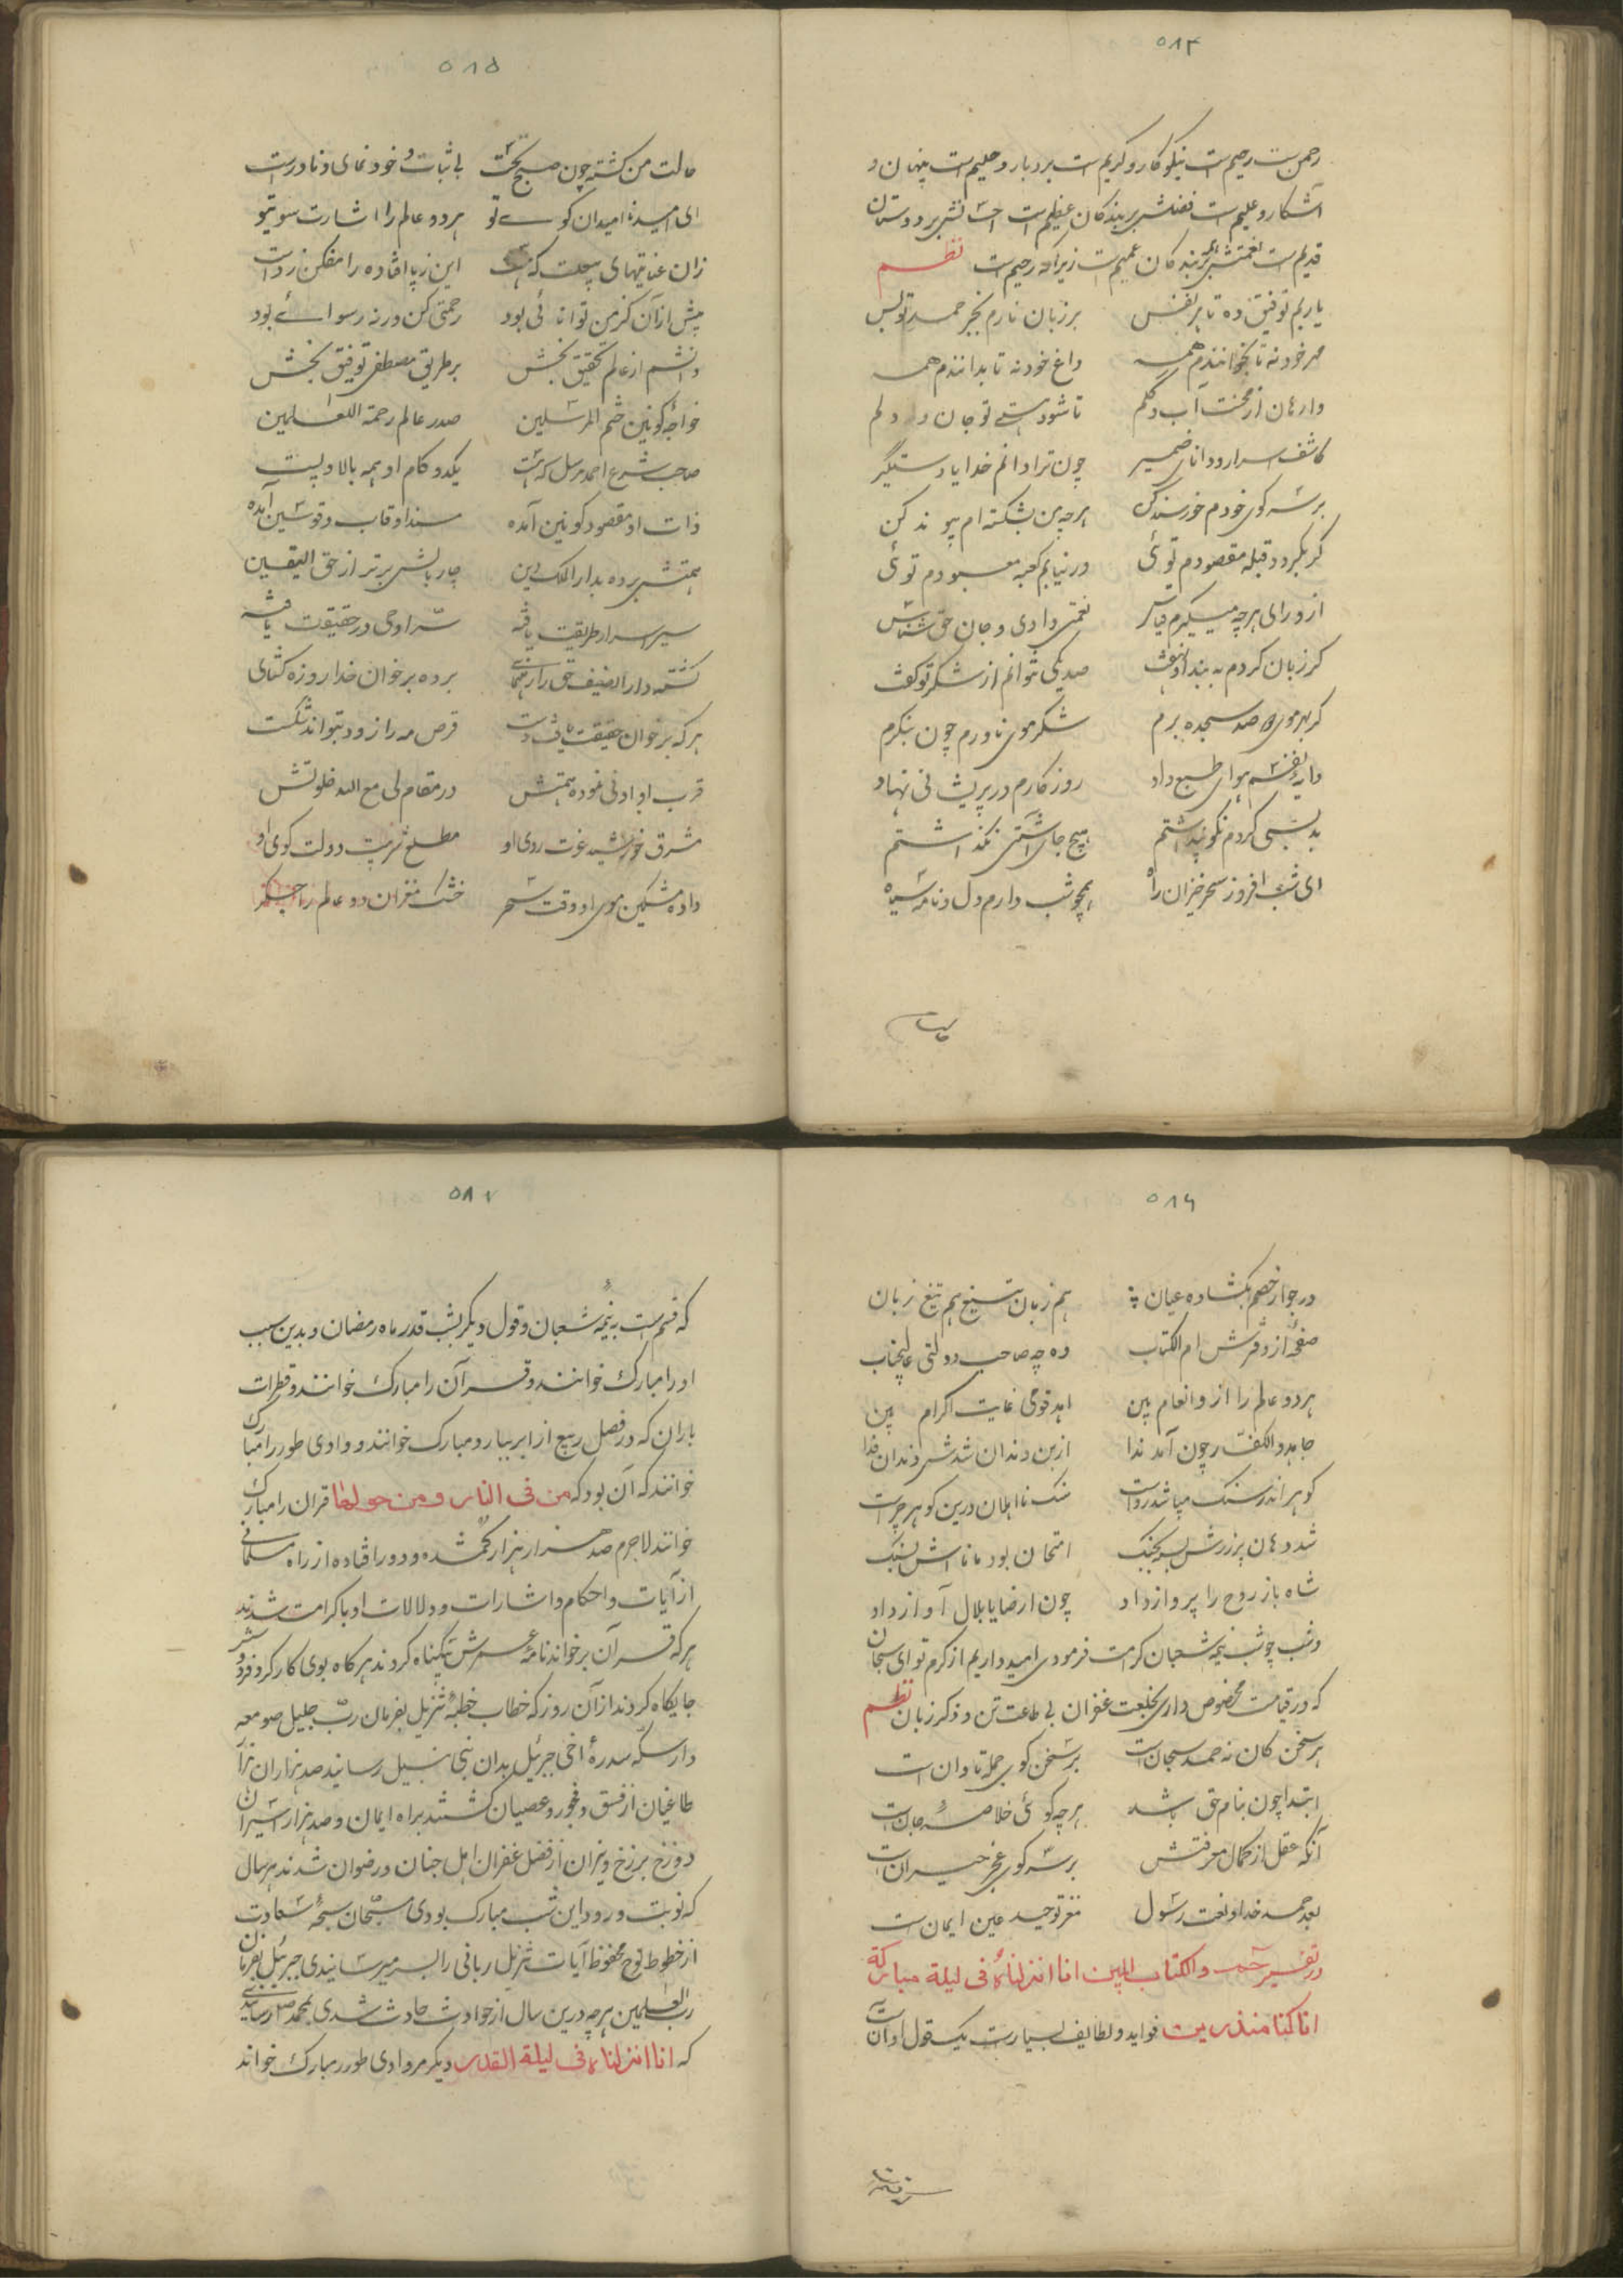 ۵۸۴
رحمن ست رحیم ست نیکو کار و کریم ست بردبار و حلیم ست پنهان و
آشکار و علیم ست فضلش بر بندکان عظیم ست احسانش بر دوستان
قدیم ست نعمتش بر بندکان عمیم ست زیرا که رحیم ست نظم
یاربم توفیق ده تا بر نفس برزبان نارم بجز حمد تو بس
مهر خود نه تا بخوانندم همه داغ خود نه تا بدانندم همه
وارهان از محنت آب و کلم تا شود تو جان و دلم
کاشف اسرار و دانای ضمیر چون ترا دانم خدایا دستگیر
بر سر کوی خودم خورسند کن هرچه من بشکسته ام پیوند کن
کر بکردد قبله مقصودم توئی ور نیابم کعبه معبودم توئی
از ورای هرچه میکیرم قیاس نعمتی دادی و جان حق شناس
کر زبان کردم به بند صد یکی نتوانم از شکر تو کفت
کر بهر موی صد سجده برم شکر موی ناورم چون بنکرم
مایه نفسم هوای طبع داد روزکارم در پریشانی نهاد
بد بسی کردم نکو پنداشتم هیچ جای آشتی نکذاشتم
ای شب افروز سحرخیزان راه همچو شب دارم دل و نامه سیاه
حالت
۵۸۵
حالت من کشته چون صبح نخست با ثبات و خود نمای و نادرست
ای امید ناامیدان کوی تو هر دو عالم را اشارت سوی تو
زان عنایتهای بیعلت که هست این زپا افتاده را مفکن ز دست
پیش از آن کز من توانائی بود رحمتی کن ورنه رسوائی بود
دانشم از عالم تحقیق بخش بر طریق مصطفی توفیق بخش
خواجه کونین ختم المرسلین صدر عالم رحمة للعالمین
صاحب شرع احمد مرسل که هست یکدو کام او همه بالا و پست
ذات او مقصود کونین آمده مسند او قاب و قوسین آمده
همتش برده بدار الملک دین چار بالش برتر از حق الیقین
سیر اسرار طریقت یافته سرّ اوحی در حقیقت یافته
کشته دار الضیف حق را رهنمای برده بر خوان خدا روزه کشای
هر که بر خوان حقیقت یافت دست قرص مه را زود بتواند شکست
قرب او ادنی نموده همتش در مقام لی مع الله خلوتش
مشرق خورشید عزت روی او مطلع دولت کوی او
داده مشکین موی او وقت سحر خشک مغزان دو عالم را
۵۸۶
در جوار خصم بکشاده عیان هم زبان تیغ هم تیغ زبان
صفحه از دفترش ام الکتاب ده چه صاحب دولتی عالیجناب
هر دو عالم را از و انعام بین اهد قومی غایت اکرام بین
جاهد الکفار چون آمد ندا از بن دندان شدش دندان فدا
کوهر اندر سنک میباشد رواست سنک نااهلان درین کوهر چراست
شد دهان پر زرش امتحان بود مانا اش بسنک
شاه باز روح را پرواز داد چون ارضایا بلال آواز داد
و شب چو شب نیمه شعبان کرامت فرمودی امیدداریم از کرم تو ای سبحان
که در قیامت مخصوص داری بخلعت غفران بی طاعت تن و ذکر زبان نظم
هر سخن کان نه حمد سبحان است بر سخن کوی جمله تاوان است
ابتدا چون بنام حق باشد هرچه کوئی خلاصه جان است
آنکه عقل از کمال معرفتش بر سر کوی عجز حیران است
بعد حمد خدا و نعت رسول مغز توحید عین ایمان است
در تفسیر حم والکتاب المبین انا انزلناه فی لیلة مبارکة
انا کنا منذرین فواید و لطایف بسیارست یک قول او آنست
۵۸۷
که قسم ست به نیمه شعبان و قول دیکر بشب قدر ماه رمضان و بدین سبب
او را مبارک خوانند و قرآن را مبارک خوانند و قطرات
باران که در فصل ربیع از ابر ببارد مبارک خوانند و وادی طور را مبارک
خوانند که آن بود که من فی النار و من حولها قران را مبارک
خوانند لاجرم صد هزار هزار کمشده و دور افتاده از راه مسلمانی
از آیات و احکام و اشارات و دلالات او باکرامت شدند
هر که قرآن برخواند نامه عمرش بیکناه کردند هر کاه بوی کار کرد
جایکاه کردند از آن روز که خطاب خطبه تنزیل بفرمان ربّ جلیل صومعه
دار سکه سدره اخی جبرئیل بدان نبی نبیل رسانید صد هزاران هزار
طاغیان از فسق و فجور و عصیان کشتند براه ایمان و صد هزار اسیران
دوزخ برزخ و نیران از فضل غفران اهل جنان و رضوان شدند هر سال
که نوبت ورود این شب مبارک بودی سبحان سبحه سعادت
از خطوط لوح محفوظ آیات تنزیل ربانی را بسر میرسانیدی جبرئیل بفرمان
رب العلمین هرچه درین سال از حوادث حادث شدی بمحمد رسانیدی
که انا انزلناه فی لیلة القدر دیکر مر وادی طور را مبارک خواند